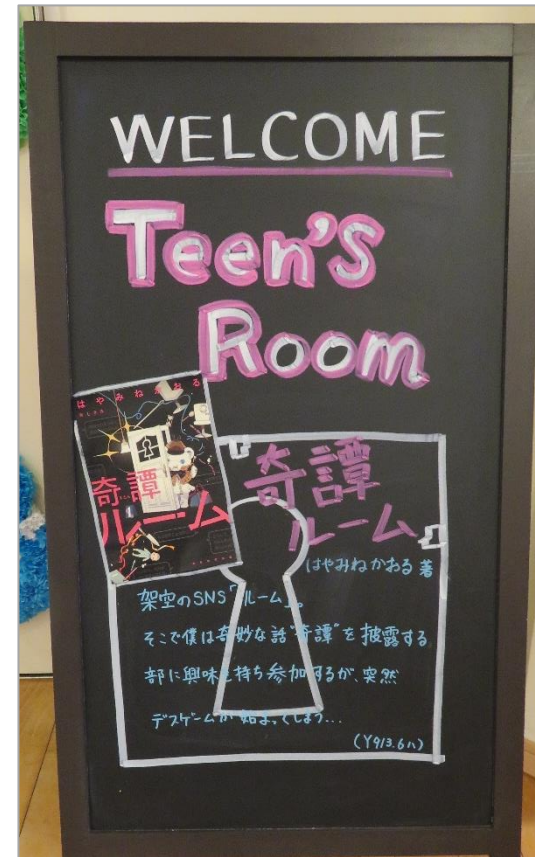 WELCOME
Teen's
Room
はやみねかおる
奇譚
ルーム
奇譚
ルーム
はやみねかおる 著
架空のSNS「ルーム」。
そこで僕は奇妙な話"奇譚"を披露する
部に興味を持ち参加するが、突然
デスゲームが始まってしまう...
(Y913.6ハ)